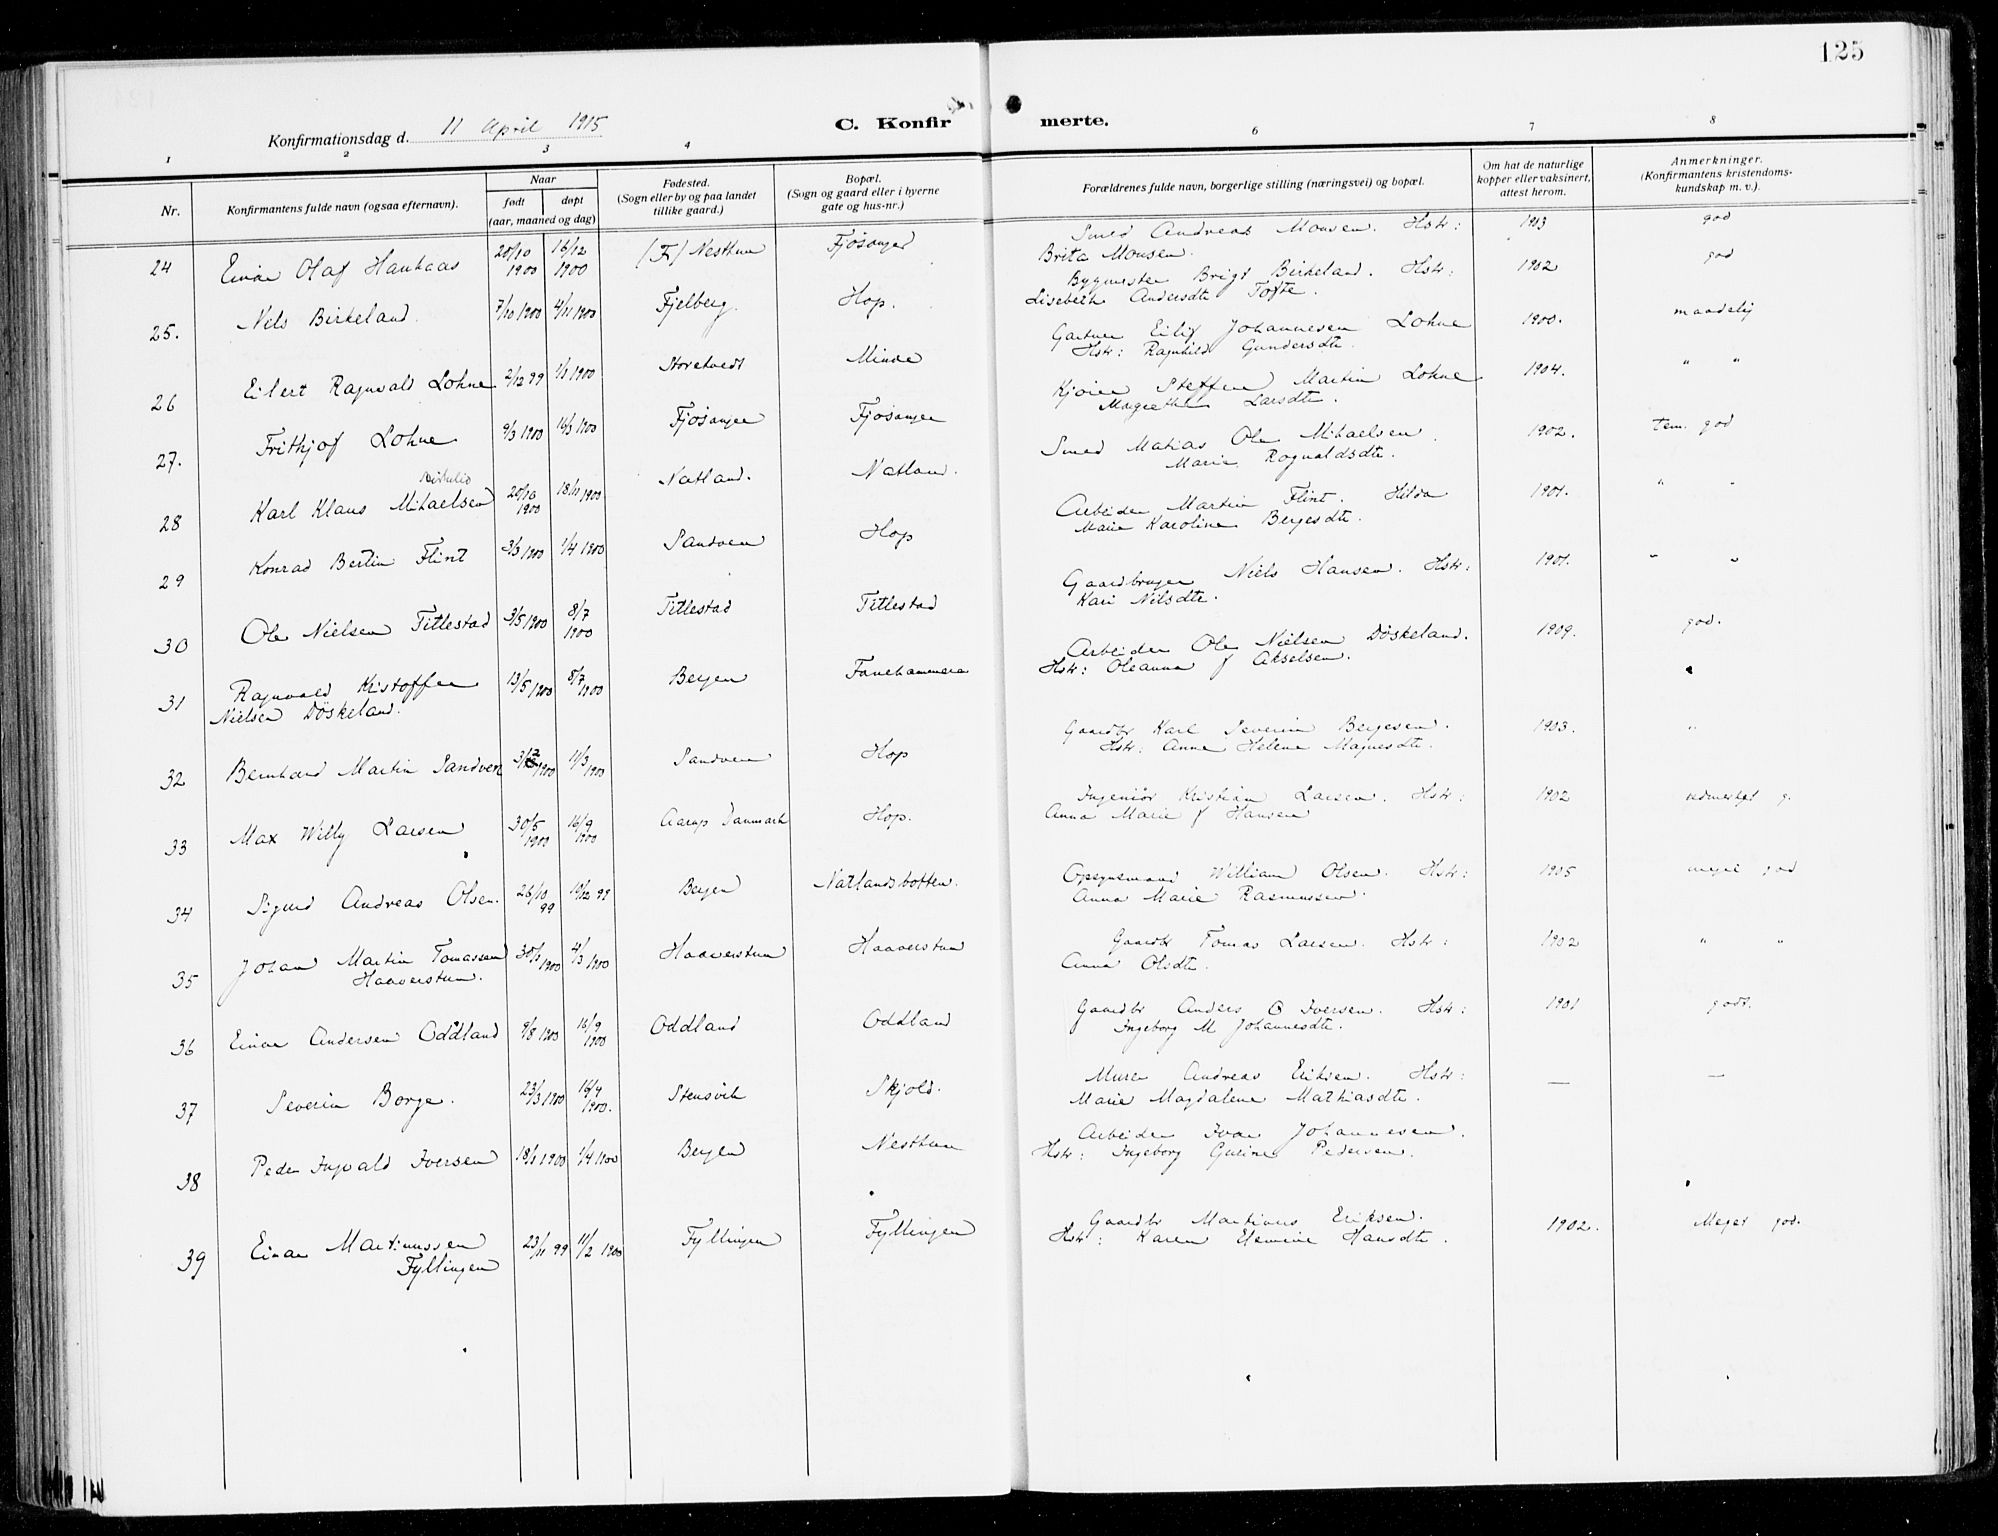 125
Konfirmationsdag d. 11 April 1915
C. Konfirmerte.
1 2 3 4 6 7 8
Nr.
Konfirmantens fulde navn (ogsaa efternavn).
Naar
født døpt
(aar, maaned og dag)
Fødested.
(Sogn eller by og paa landet
tillike gaard.)
Bopæl.
(Sogn og gaard eller i byerne
gate og hus-nr.)
Forældrenes fulde navn, borgerlige stilling (næringsvei) og bopæl.
Om hat de naturlige
kopper eller vaksinert,
attest herom.
Anmerkninger.
(Konfirmantens kristendoms-
kundskap m. v.).
24 Einar Olaf Hauhaas 20/10 1900 16/12 1900 (F) Nesttun Fjøsanger Smed Andreas Monsen. Hstr: 1903 god
Brita Monsen.
25. Nels Birkeland. 7/10 1900 4/11 1900 Fjelberg. Hop. Bygmester Brigt Birkeland. Hstr: 1902 god
Lisebeth Andersdtr Tofte.
26 Eilert Ragnvald Lohne 2/12 99 1/1 1900 Storetvedt Minde Gartner Eilif Johannesen Lohne 1900. maadelig
Hstr: Ragnhild Gundersdtr.
27. Frithjof Lohne 9/3 1900 1900 Fjøsanger Fjøsanger Kjører Steffen Martin Lohne 1904. " "
Margrethe Larsdtr.
28 Karl Klaus Mihaelsen 20/10 1900 18/11 1900 Natland. Natland. Smed Matias Ole Mihaelsen. 1902. tem. god
Marie Rognaldsdtr.
29 Konrad Bertin Flint 3/3 1900 1/4 1900 Sandven Hop Arbeider Martin Flint. Hilda 1901. " "
Marie Karoline Bergesdtr.
30 Ole Nielsen Titlestad 3/5 1900 8/7 1900 Titlestad Titlestad Gaardbruger Niels Hansen. Hstr: 1901. " "
Kari Nilsdtr.
31 Ragnvald Kristoffer 13/5 1900 8/7 1900 Bergen Fanehammeren Arbeider Ole Nielsen Döskeland. 1909. god.
Nielsen Döskeland. Hstr: Oleanna f Akselsen.
32 Bernhard Martin Sandven 1900 11/3 1900 Sandven Hop Gaardbr Karl Severin Bergesen. 1903. "
Hstr: Anna Helene Magnesdtr.
33 Max Willy Larsen 30/5 1900 16/9 1900 Aarup Danmark Hop. Ingeniör Kristian Larsen. Hstr: 1902 udmerket g.
Anna Marie f Hansen
34 Sigurd Andreas Olsen. 26/10 99 10/12 99 Bergen Natlandsbotten. Opsynsmand William Olsen. Hstr: 1905 meget god
Anna Marie Rasmussen.
35 Johan Martin Tomassen 30/1 1900 4/3 1900 Haaverstun Haaverstun Gaardbr Tomas Larsen. Hstr: 1902 " "
Haaverstun. Anna Olsdtr.
36 Einar Andersen Oddland 9/8 1900 16/9 1900 Oddland Oddland Gaardbr Anders O Iversen. Hstr: 1901 godt.
Ingeborg M Johannesdtr.
37 Severin Borge. 23/3 1900 16/4 1900. Stensvik Skjold. Murer Andreas Eriksen. Hstr: — —
Marie Magdalene Mathiasdtr.
38 Peder Ingvald Iversen 18/1 1900 1/4 1900 Bergen Nesttun Arbeider Ivar Johannesen.
Hstr: Ingeborg Gurine Pedersen.
39 Einar Martinussen 23/11 99 11/2 1900 Fyllingen Fyllingen Gaardbr Martinus Eriksen. 1902. Meget god.
Fyllingen Hstr: Karen Elemine Hansdtr.